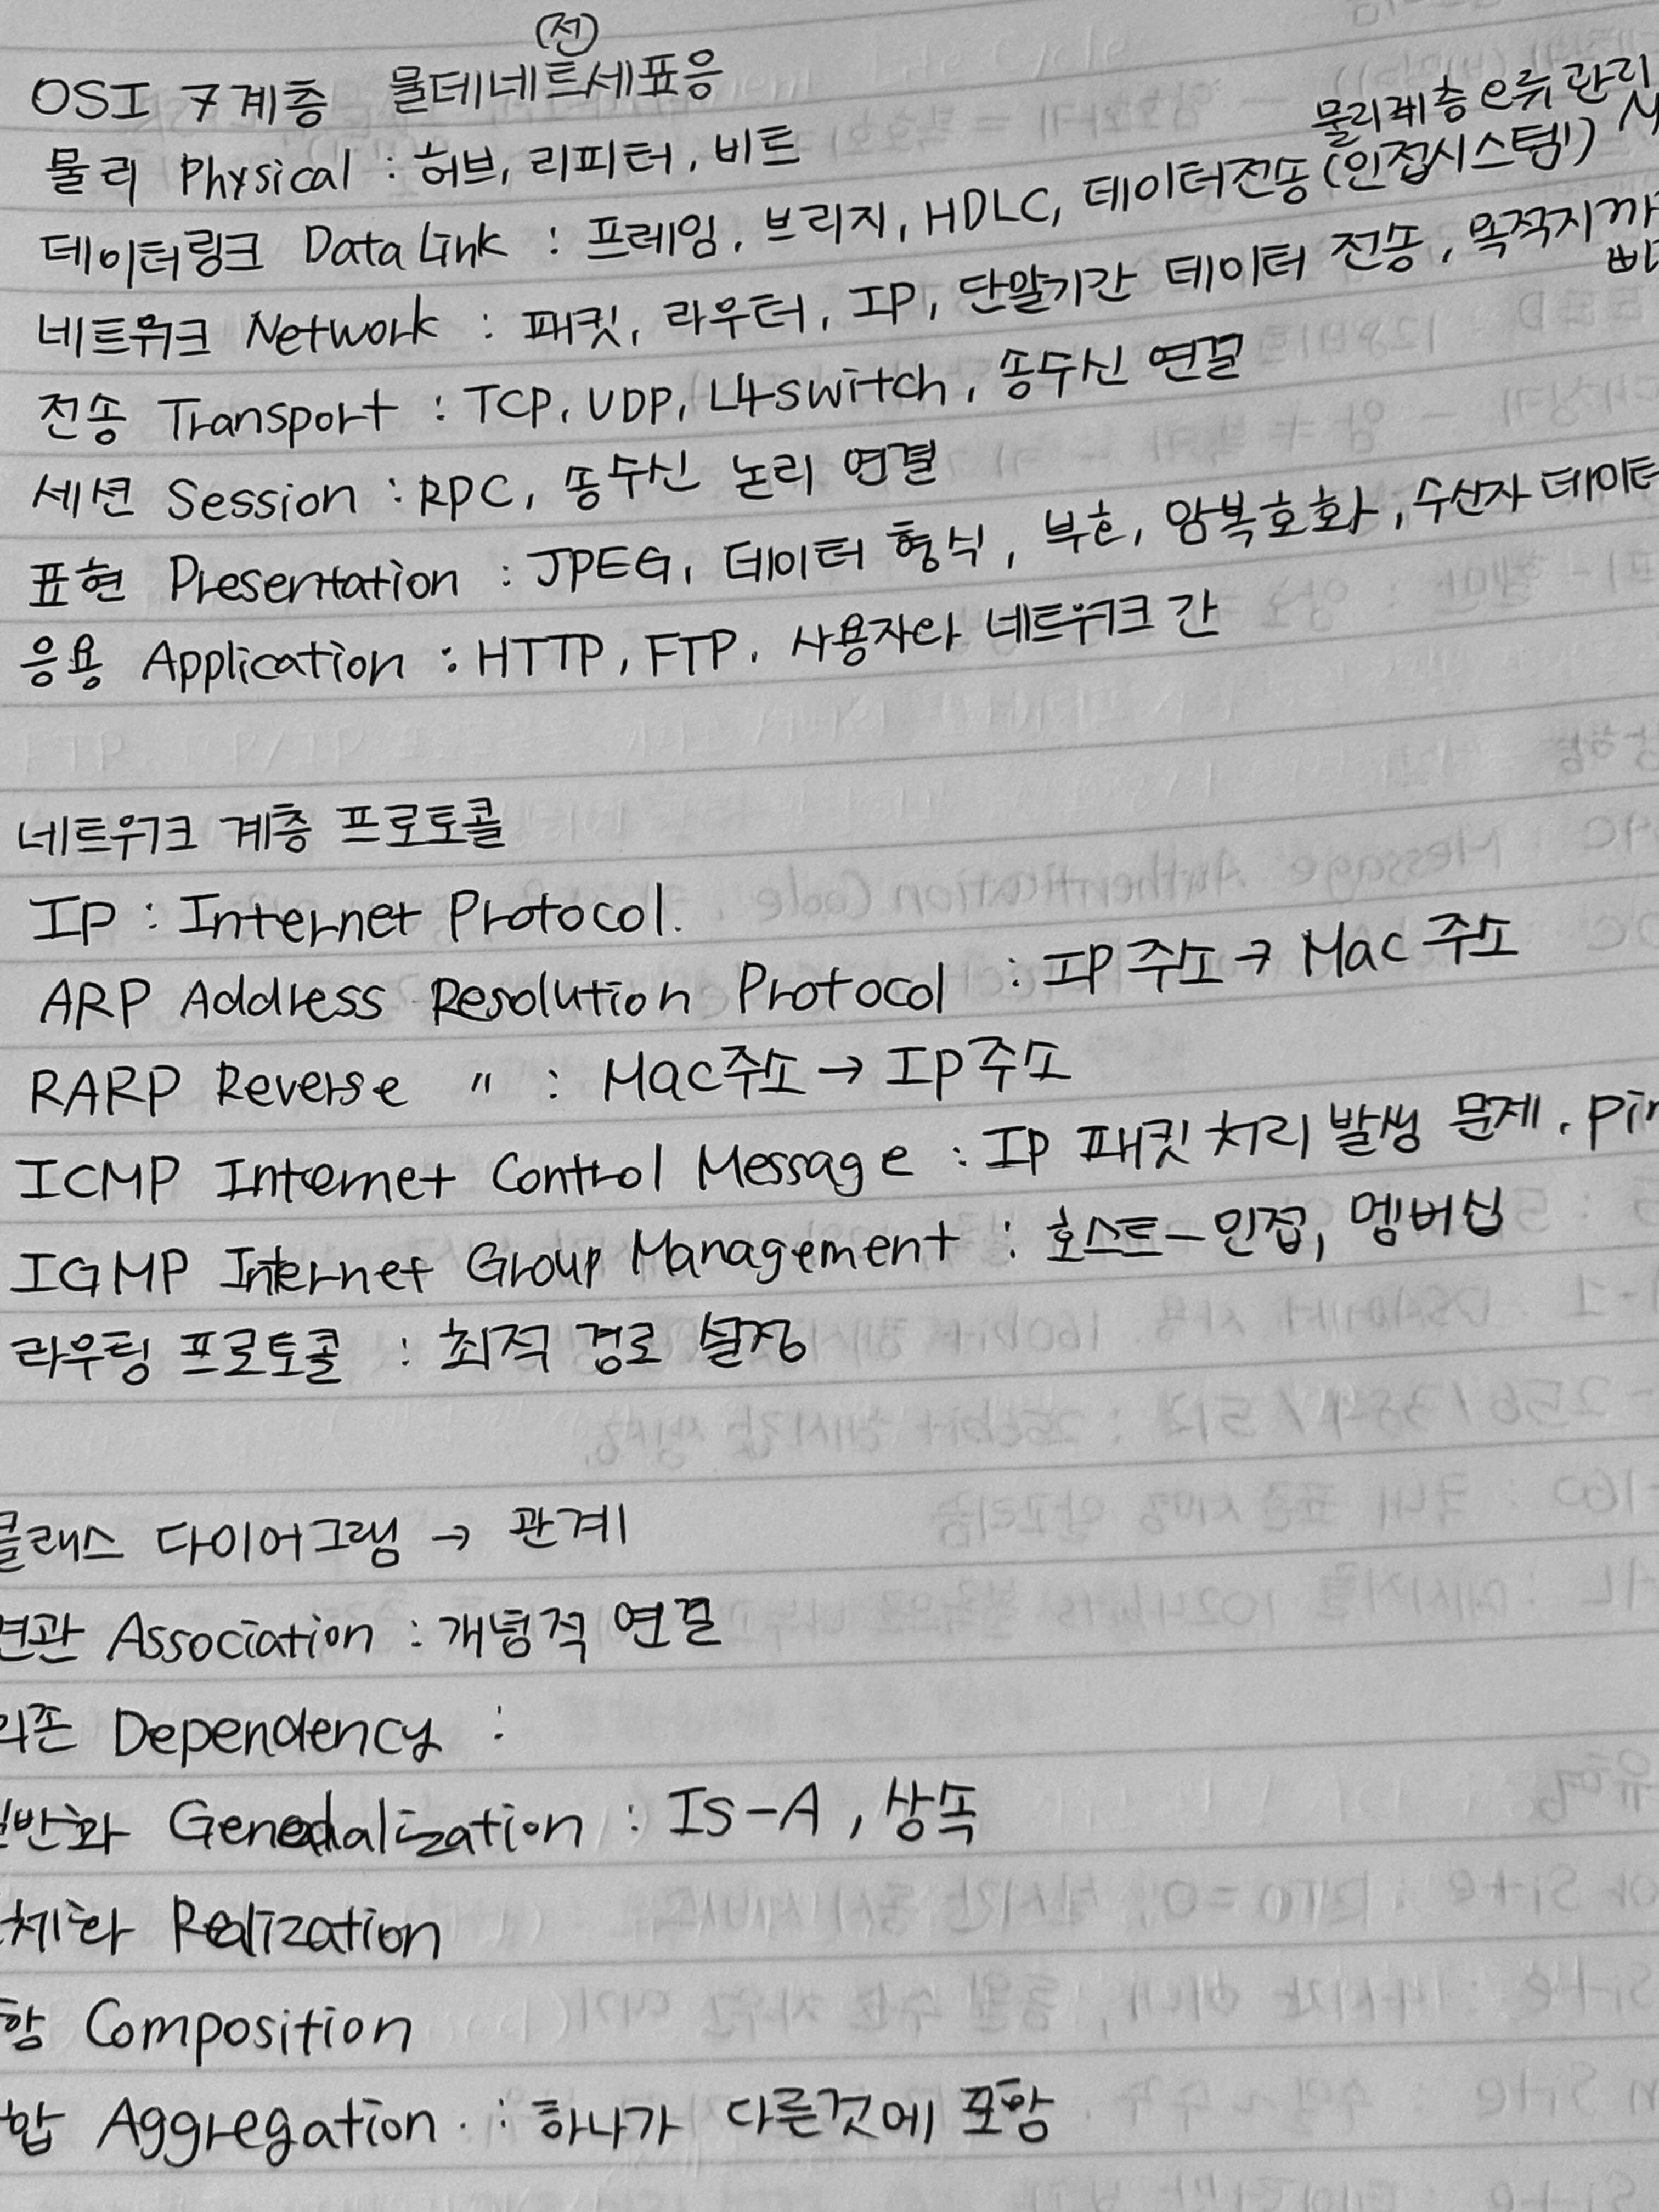 (전)
OSI 7계층 물데네트세표응
물리계층 오류 관리
물리 Physical : 허브, 리피터, 비트
데이터링크 Data Link : 프레임, 브리지, HDLC, 데이터전송(인접시스템)
네트워크 Network : 패킷, 라우터, IP, 단말기간 데이터 전송, 목적지까
전송 Transport : TCP, UDP, L4switch, 송수신 연결
세션 Session : RPC, 송수신 논리 연결
표현 Presentation : JPEG, 데이터 형식, 부호, 암복호화, 수신자 데이터
응용 Application : HTTP, FTP, 사용자와 네트워크 간
네트워크 계층 프로토콜
IP : Internet Protocol.
ARP Address Resolution Protocol : IP 주소 → Mac 주소
RARP Reverse 〃 : Mac주소 → IP주소
ICMP Internet Control Message : IP 패킷 처리 발생 문제, pin
IGMP Internet Group Management : 호스트-인접, 멤버십
라우팅 프로토콜 : 최적 경로 설정
클래스 다이어그램 → 관계
연관 Association : 개념적 연결
의존 Dependency :
일반화 Generalization : IS-A, 상속
체화 Realization
함 Composition
합 Aggregation : 하나가 다른것에 포함